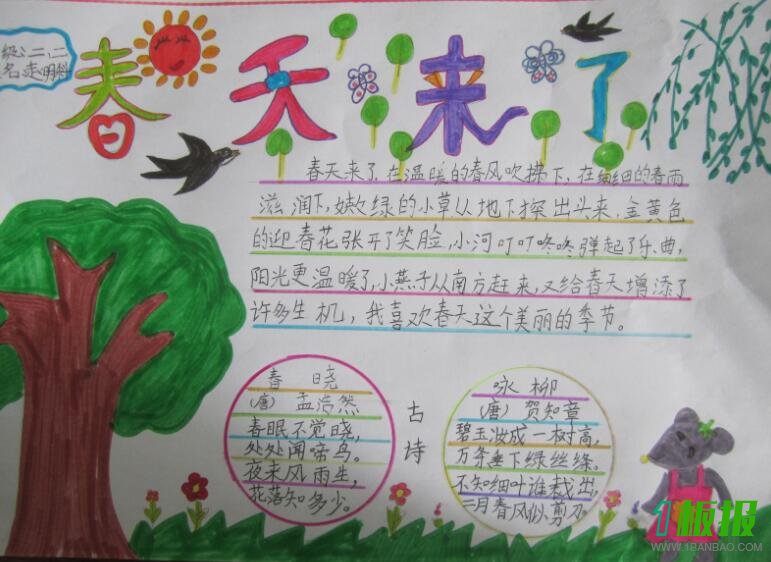 级:二.二
名:
春天来了
春天来了,在温暖的春风吹拂下,在细细的春雨
滋润下,嫩绿的小草从地下探出头来,金黄色
的迎春花张开了笑脸,小河叮叮咚咚弹起了乐曲,
阳光更温暖了,小燕子从南方赶来,又给春天增添了
许多生机,我喜欢春天这个美丽的季节。
春晓
(唐) 孟浩然
春眠不觉晓,
处处闻啼鸟。
夜来风雨生,
花落知多少。
古诗
咏柳
(唐) 贺知章
碧玉妆成一树高,
万条垂下绿丝绦。
不知细叶谁裁出,
二月春风似剪刀。
1板报
WWW.1BANBAO.COM